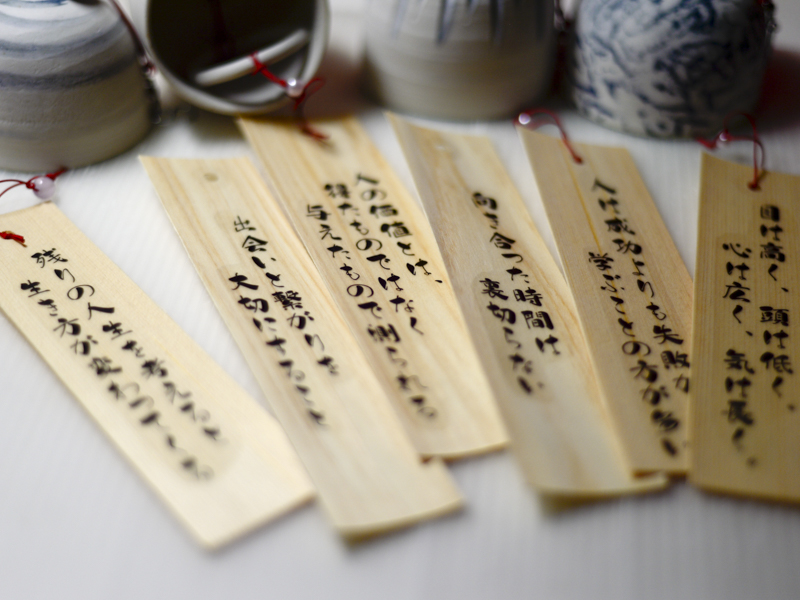 残りの人生を考えると
生き方が変わってくる
出会いと繋がりを
大切にすること
人の価値とは、
得たものではなく
与えたもので測られる
向き合った時間は
裏切らない
人は成功よりも失敗から
学ぶことの方が多い
目は高く、頭は低く、
心は広く、気は長く、